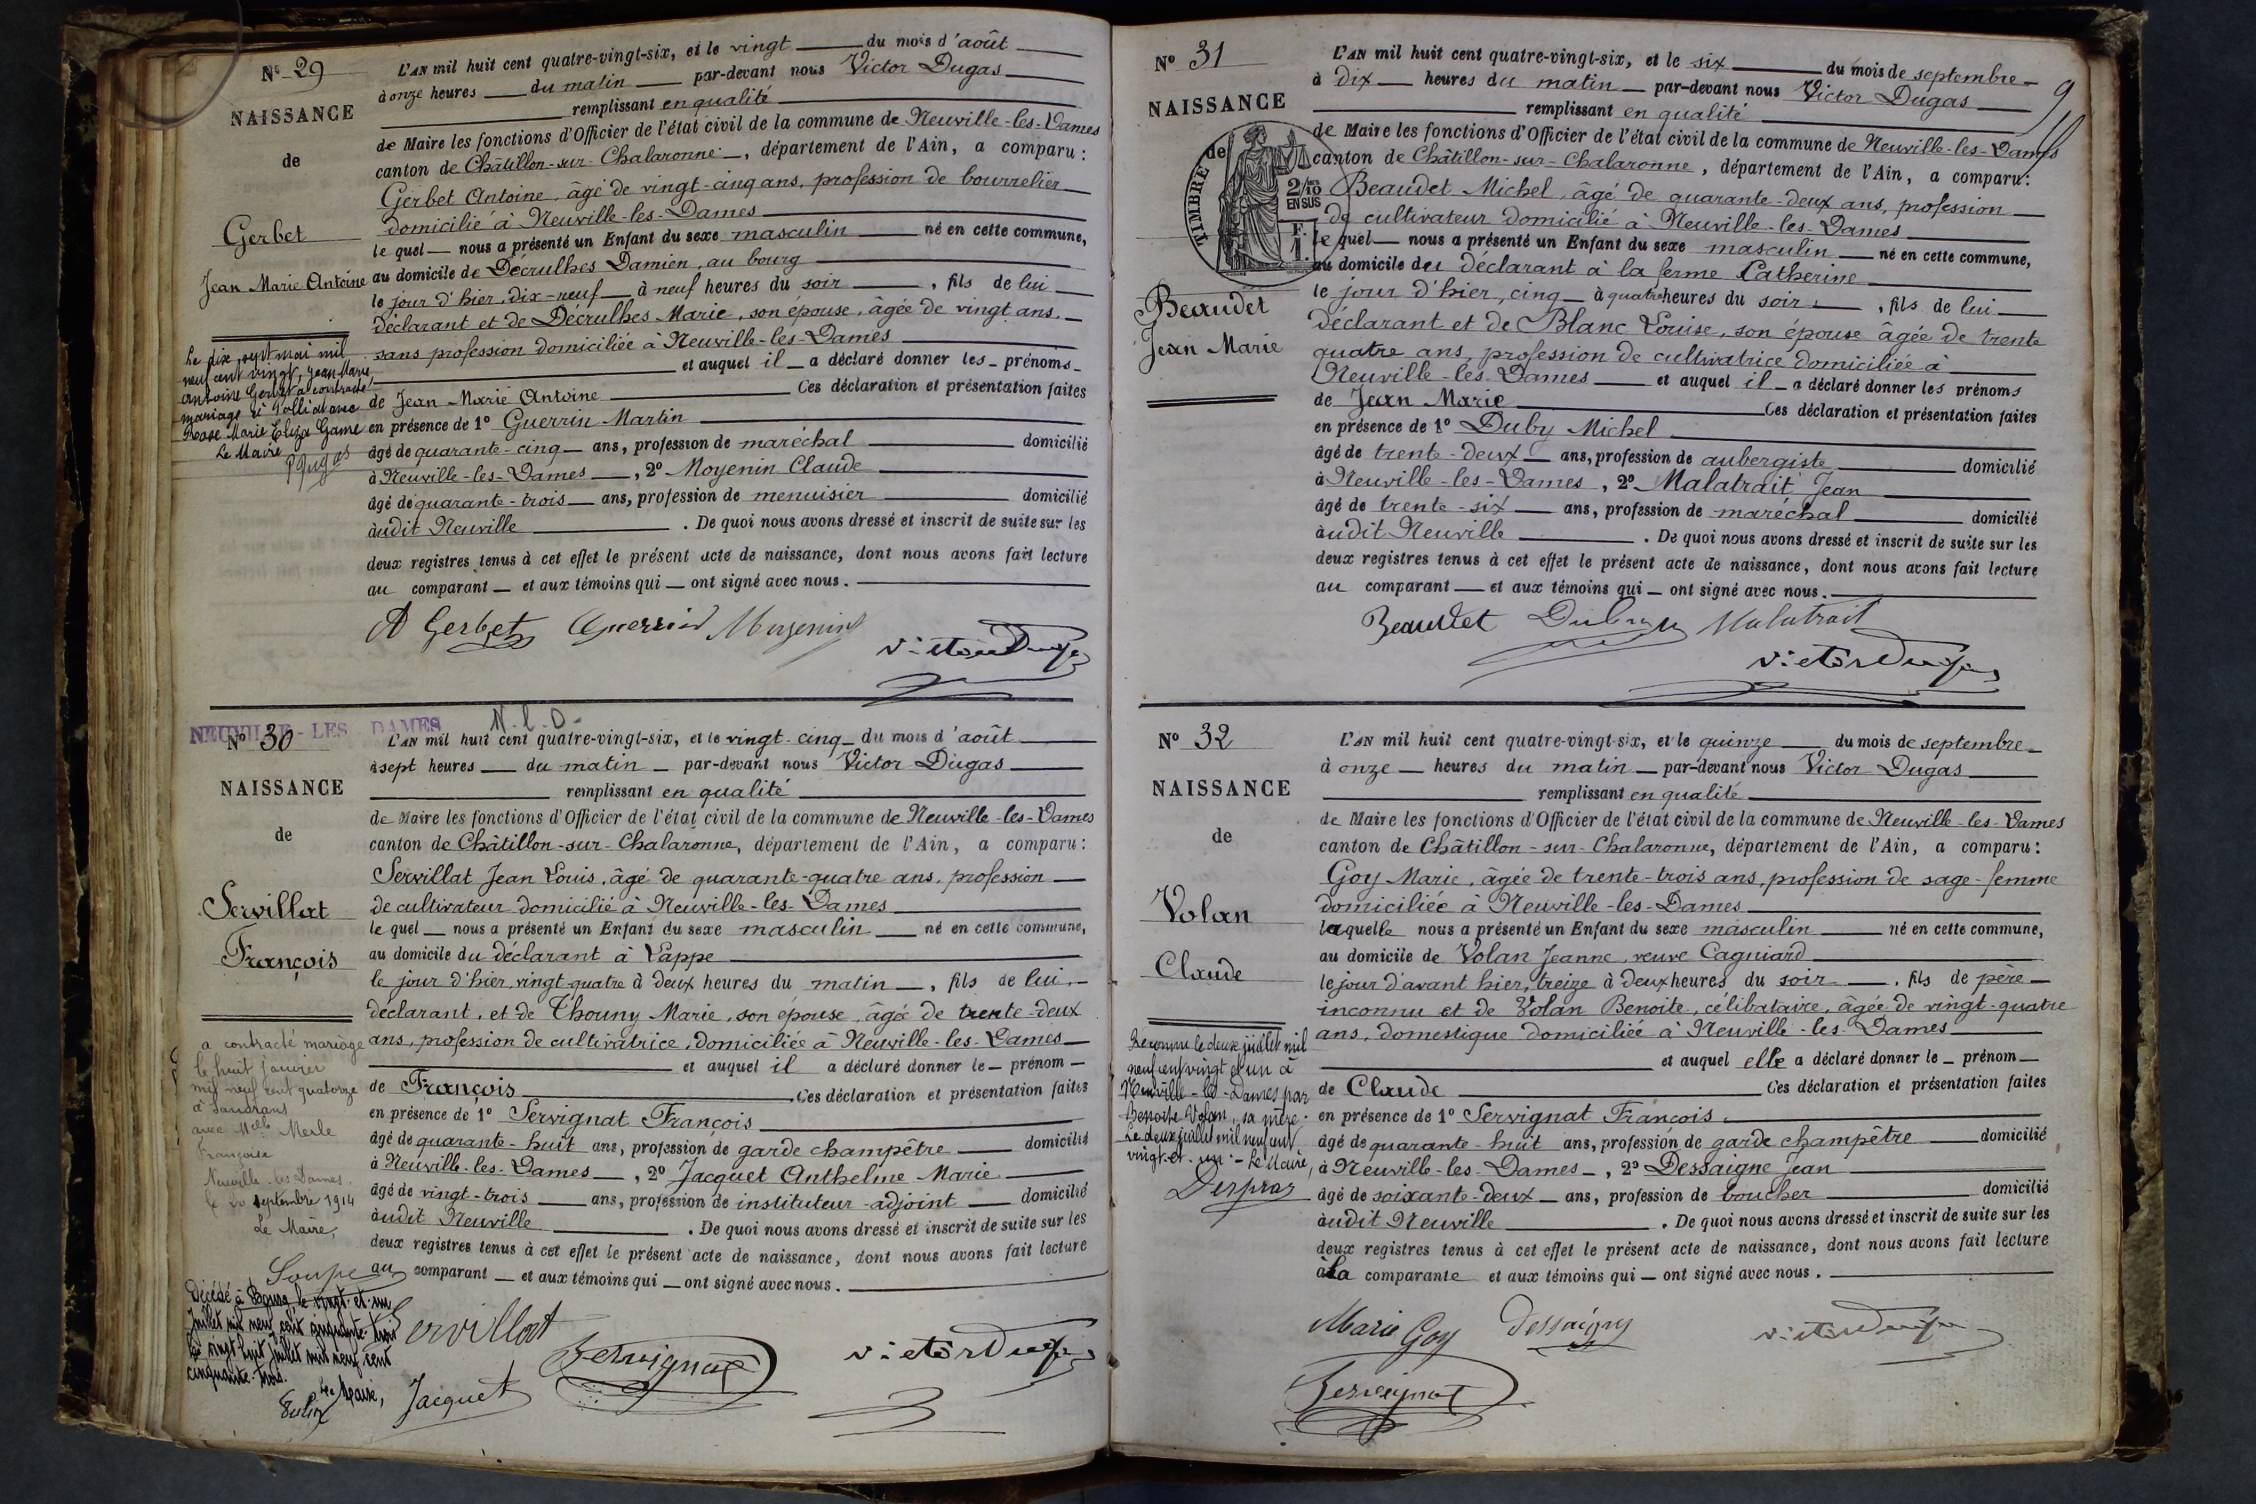 N° 29
NAISSANCE
de
Gerbet
Jean Marie Antoine
Le dix sept mai mil
neuf cent vingt, Jean Marie
Antoine Gerbet a contracté
mariage à avec
Rose Marie Eliza Game
Le Maire
L'AN mil huit cent quatre-vingt-six, et le vingt du mois d'août
à onze heures du matin par-devant nous Victor Dugas
remplissant en qualité
de Maire les fonctions d'Officier de l'état civil de la commune de Neuville-les-Dames
canton de Châtillon-sur-Chalaronne, département de l'Ain, a comparu :
Gerbet Antoine, âgé de vingt-cinq ans, profession de bourrelier
domicilié à Neuville-les-Dames
le quel nous a présenté un Enfant du sexe masculin né en cette commune,
au domicile de Décrulhes Damien, au bourg
le jour d'hier, dix-neuf à neuf heures du soir, fils de lui
déclarant et de Décrulhes Marie, son épouse, âgée de vingt ans,
sans profession domiciliée à Neuville-les-Dames
et auquel il a déclaré donner les prénoms
de Jean Marie Antoine Ces déclaration et présentation faites
en présence de 1° Guerrin Martin
âgé de quarante-cinq ans, profession de maréchal domicilié
à Neuville-les-Dames, 2° Moyenin Claude
âgé de quarante-trois ans, profession de menuisier domicilié
àudit Neuville. De quoi nous avons dressé et inscrit de suite sur les
deux registres tenus à cet effet le présent acte de naissance, dont nous avons fait lecture
au comparant et aux témoins qui ont signé avec nous.
A Gerbet Guerrin Moyenin
Victor Dugas
NEUVILLE-LES DAMES
N.l.D.
N° 30
NAISSANCE
de
Servillat
François
a contracté mariage
le huit janvier
mil neuf cent quatorze
à Sandrans
avec Melle Merle
Françoise
Neuville-les-Dames,
le 20 septembre 1914
Le Maire,
Décédé à Bourg le vingt-et-un
Juillet mil neuf cent cinquante-trois
Le vingt huit Juillet mil neuf cent
cinquante-trois.
Le Maire,
L'AN mil huit cent quatre-vingt-six, et le vingt-cinq du mois d'août
à sept heures du matin par-devant nous Victor Dugas
remplissant en qualité
de Maire les fonctions d'Officier de l'état civil de la commune de Neuville-les-Dames
canton de Châtillon-sur-Chalaronne, département de l'Ain, a comparu :
Servillat Jean Louis, âgé de quarante-quatre ans, profession
de cultivateur domicilié à Neuville-les-Dames
le quel nous a présenté un Enfant du sexe masculin né en cette commune,
au domicile du déclarant à Lappe
le jour d'hier vingt-quatre à deux heures du matin, fils de lui,
déclarant, et de Thouny Marie, son épouse, âgée de trente-deux
ans, profession de cultivatrice, domiciliée à Neuville-les-Dames
et auquel il a déclaré donner le prénom
de François. Ces déclaration et présentation faites
en présence de 1° Servignat François
âgé de quarante-huit ans, profession de garde champêtre domicilié
à Neuville-les-Dames, 2° Jacquet Anthelme Marie
âgé de vingt-trois ans, profession de instituteur-adjoint domicilié
àudit Neuville. De quoi nous avons dressé et inscrit de suite sur les
deux registres tenus à cet effet le présent acte de naissance, dont nous avons fait lecture
au comparant et aux témoins qui ont signé avec nous.
Servillat
Servignat
Victor Dugas
Jacquet
N° 31
NAISSANCE
de
TIMBRE
2/10
EN SUS
F.
1.
Beaudet
Jean Marie
9
L'AN mil huit cent quatre-vingt-six, et le six du mois de septembre
à dix heures du matin par-devant nous Victor Dugas
remplissant en qualité
de Maire les fonctions d'Officier de l'état civil de la commune de Neuville-les-Dames
canton de Châtillon-sur-Chalaronne, département de l'Ain, a comparu :
Beaudet Michel, âgé de quarante-deux ans, profession
de cultivateur domicilié à Neuville-les-Dames
le quel nous a présenté un Enfant du sexe masculin né en cette commune,
au domicile du déclarant à la ferme Catherine
le jour d'hier, cinq à quatre heures du soir, fils de lui
déclarant et de Blanc Louise, son épouse âgée de trente
quatre ans, profession de cultivatrice domiciliée à
Neuville-les-Dames et auquel il a déclaré donner les prénoms
de Jean Marie Ces déclaration et présentation faites
en présence de 1° Duby Michel
âgé de trente-deux ans, profession de aubergiste domicilié
à Neuville-les-Dames, 2° Malatrait Jean
âgé de trente-six ans, profession de maréchal domicilié
àudit Neuville. De quoi nous avons dressé et inscrit de suite sur les
deux registres tenus à cet effet le présent acte de naissance, dont nous avons fait lecture
au comparant et aux témoins qui ont signé avec nous.
Beaudet Duby Malatrait
Victor Dugas
N° 32
NAISSANCE
de
Volan
Claude
Reconnu le deux juillet mil
neuf cent vingt et un à
Neuville-les-Dames par
Benoite Volan, sa mère.
Le deux juillet mil neuf cent
vingt-et-un. Le Maire,
Despras
L'AN mil huit cent quatre-vingt-six, et le quinze du mois de septembre
à onze heures du matin par-devant nous Victor Dugas
remplissant en qualité
de Maire les fonctions d'Officier de l'état civil de la commune de Neuville-les-Dames
canton de Châtillon-sur-Chalaronne, département de l'Ain, a comparu :
Goy Marie, âgée de trente-trois ans, profession de sage-femme
domiciliée à Neuville-les-Dames
laquelle nous a présenté un Enfant du sexe masculin né en cette commune,
au domicile de Volan Jeanne, veuve Cagniard
le jour d'avant hier, treize à deux heures du soir, fils de père
inconnu et de Volan Benoite, célibataire, âgée de vingt-quatre
ans, domestique domiciliée à Neuville-les-Dames
et auquel elle a déclaré donner le prénom
de Claude Ces déclaration et présentation faites
en présence de 1° Servignat François
âgé de quarante-huit ans, profession de garde champêtre domicilié
à Neuville-les-Dames, 2° Dessaigne Jean
âgé de soixante-deux ans, profession de boucher domicilié
àudit Neuville. De quoi nous avons dressé et inscrit de suite sur les
deux registres tenus à cet effet le présent acte de naissance, dont nous avons fait lecture
à la comparante et aux témoins qui ont signé avec nous.
Marie Goy Dessaigne Victor Dugas
Servignat